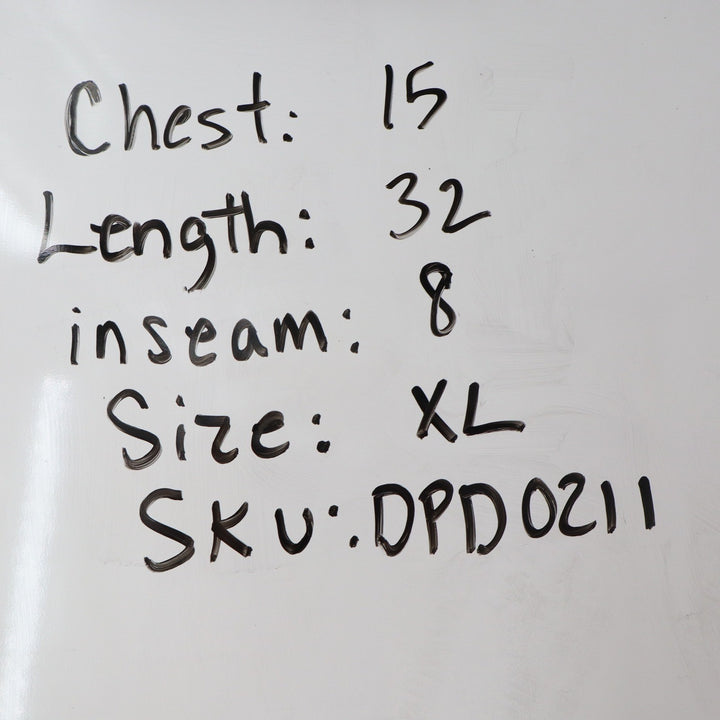 Chest: 15
Length: 32
inseam: 8
Size: XL
SKU: DPD0211